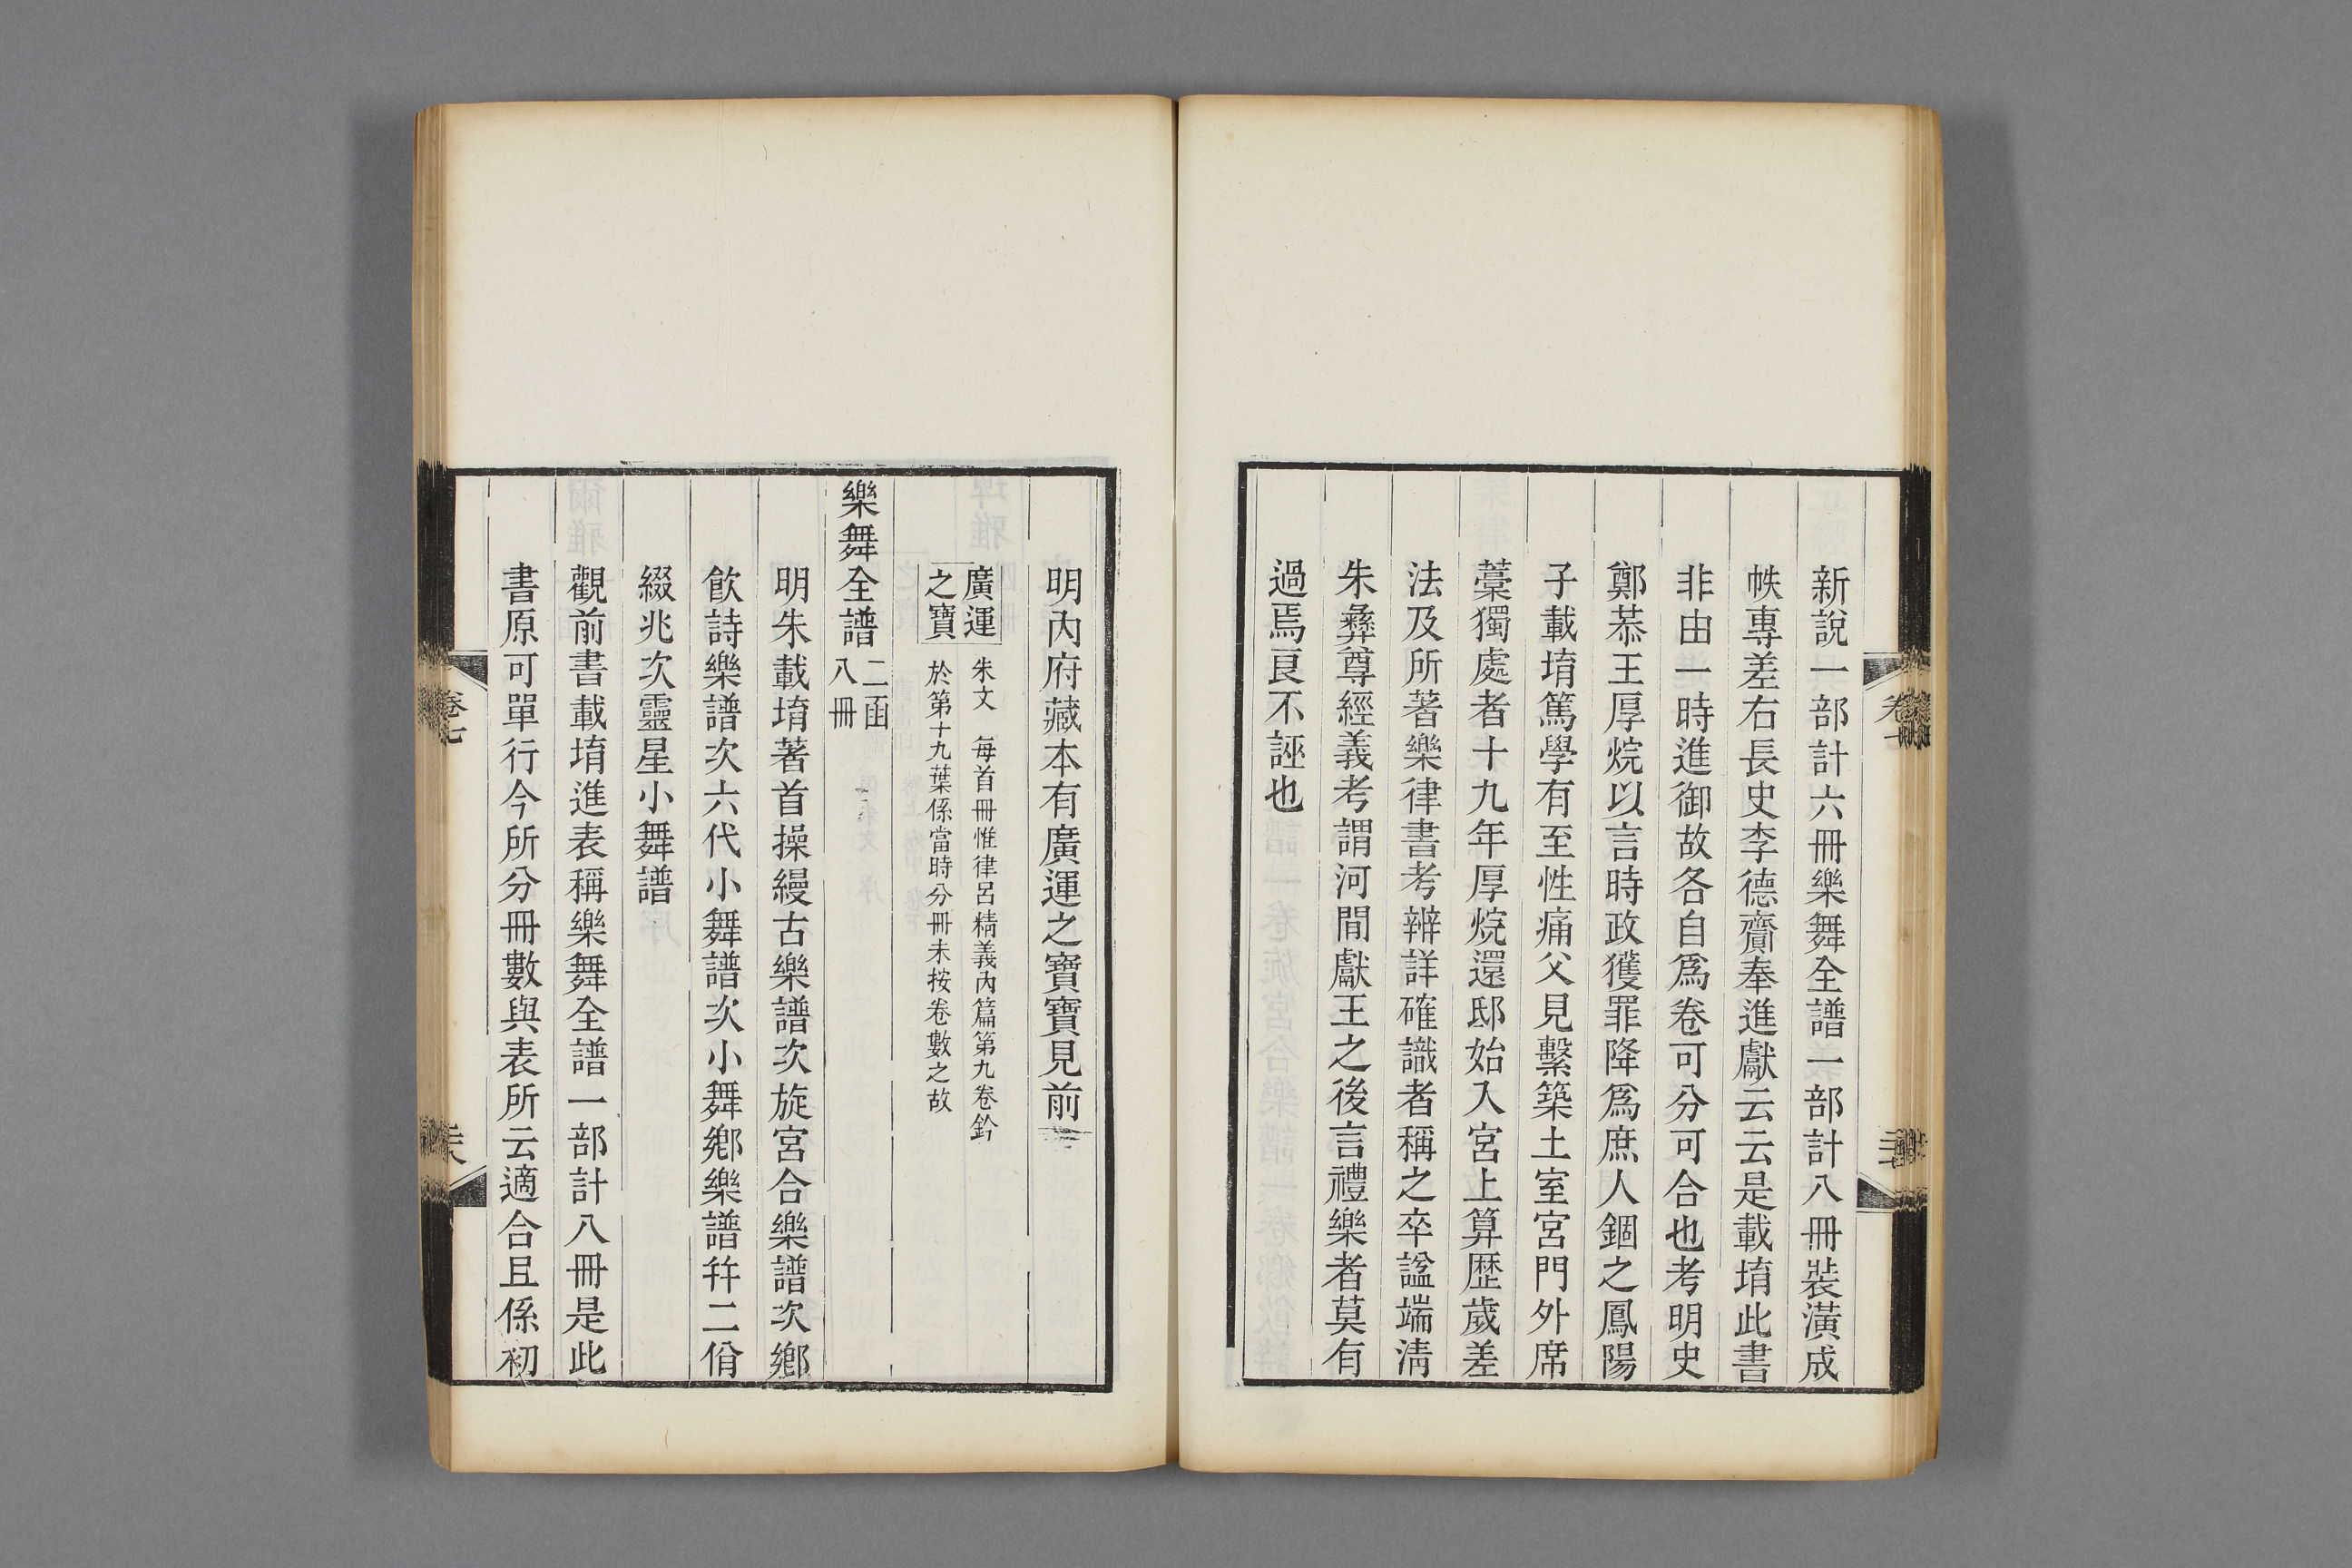 新說一部計六冊樂舞全譜一部計八冊裝潢成
帙專差右長史李德齎奉進獻云云是載堉此書
非由一時進御故各自爲卷可分可合也考明史
鄭恭王厚烷以言時政獲罪降爲庶人錮之鳳陽
子載堉篤學有至性痛父見繫築土室宮門外席
藁獨處者十九年厚烷還邸始入宮上算歷歲差
法及所著樂律書考辨詳確識者稱之卒諡端清
朱彝尊經義考謂河間獻王之後言禮樂者莫有
過焉良不誣也
明內府藏本有廣運之寶寶見前
廣運
之寶
朱文 每首冊惟律呂精義內篇第九卷鈐
於第十九葉係當時分冊未按卷數之故
樂舞全譜
二函
八冊
明朱載堉著首操縵古樂譜次旋宮合樂譜次鄉
飲詩樂譜次六代小舞譜次小舞鄉樂譜幷二佾
綴兆次靈星小舞譜
觀前書載堉進表稱樂舞全譜一部計八冊是此
書原可單行今所分冊數與表所云適合且係初
卷七